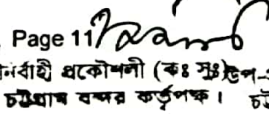 Page 11
নির্বাহী প্রকৌশলী (কঃ সুঃ) উপ-
চট্টগ্রাম বন্দর কর্তৃপক্ষ। চ